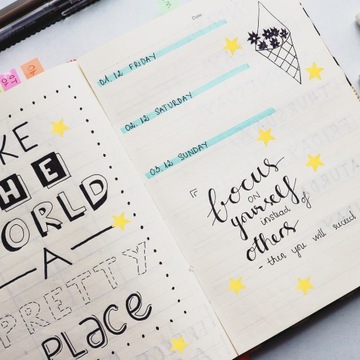 KE
THE
ORLD
A
PRETTY
PLACE
Date
01.12 FRIDAY
02.12 SATURDAY
03.12 SUNDAY
focus
ON
yourself
instead of
others
- then you will succeed